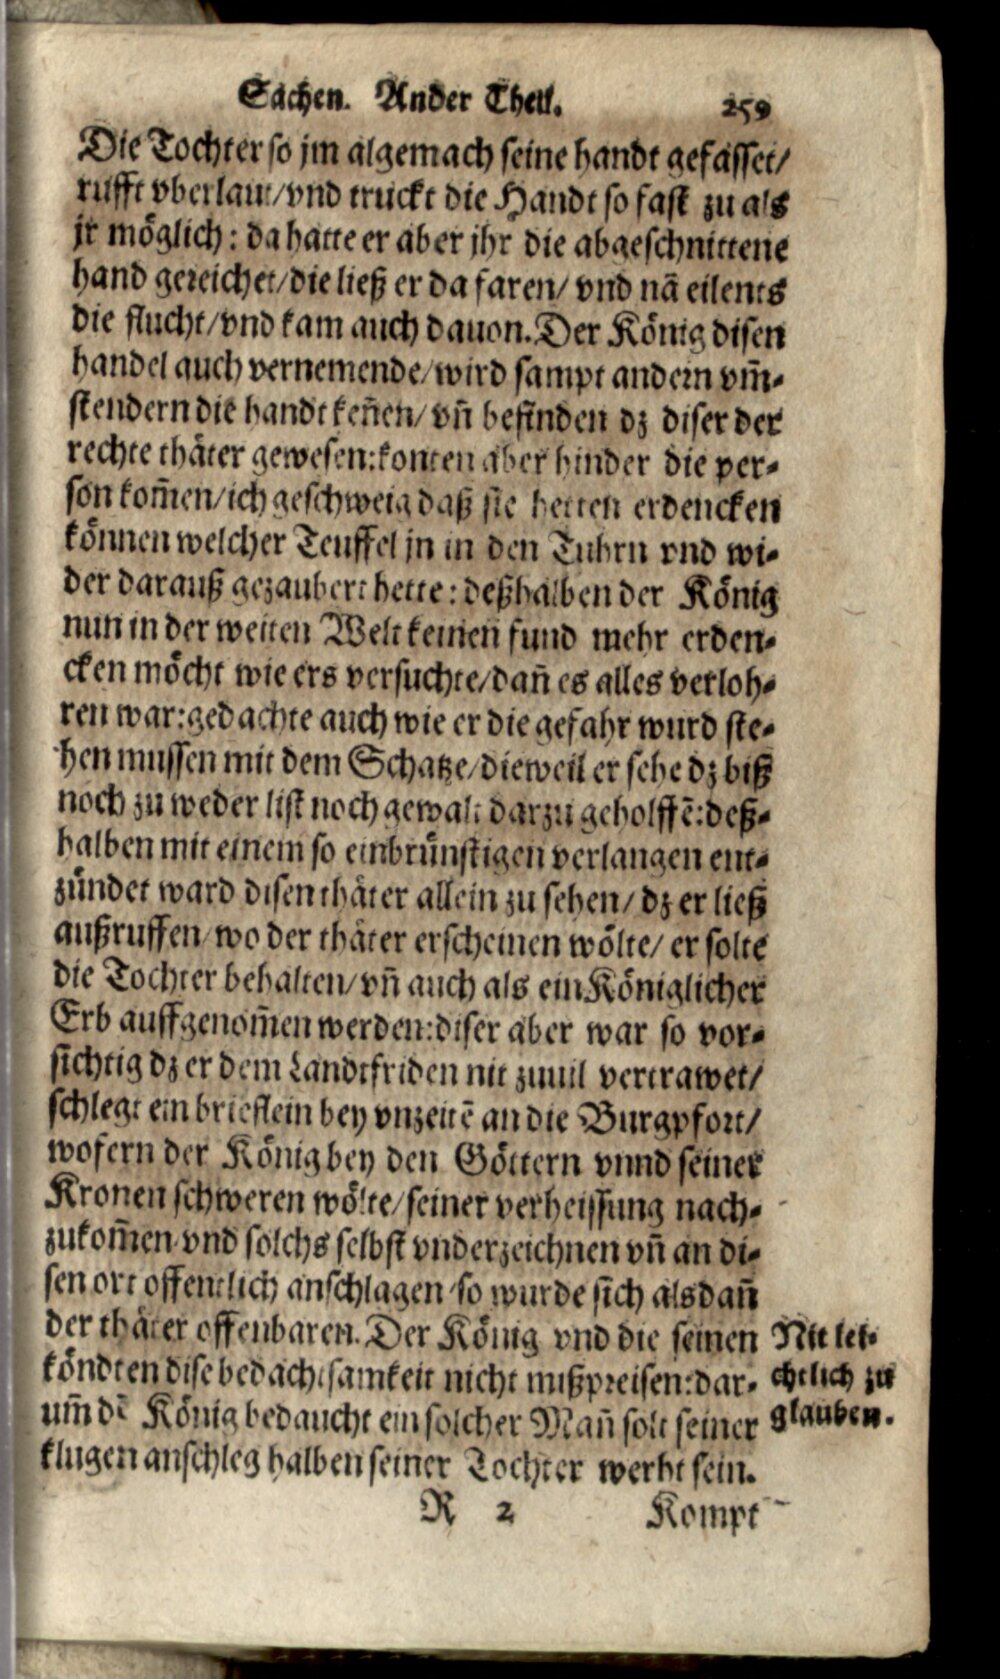 Sachen. Ander Theil. 259
Die Tochter so jm algemach seine handt gefasset/
rufft vberlaut/vnd truckt die Handt so fast zu als
jr möglich: da hatte er aber jhr die abgeschnittene
hand gereichet/die ließ er da faren/ vnd nā eilents
die flucht/vnd kam auch dauon. Der König disen
handel auch vernemende/wird sampt andern vm̄-
stendern die handt keñen/ vñ befinden dz diser der
rechte thäter gewesen: konten aber hinder die per-
son kom̄en/ich geschweig daß sie hetten erdencken
können welcher Teuffel jn in den Tuhrn vnd wi-
der darauß gezaubert hette: deßhalben der König
nun in der weiten Welt keinen fund mehr erden-
cken möcht wie ers versuchte/dañ es alles verloh-
ren war: gedachte auch wie er die gefahr wurd ste-
hen mussen mit dem Schatze/dieweil er sehe dz biß
noch zu weder list noch gewalt darzu geholffē: deß-
halben mit einem so einbrünstigen verlangen ent-
zündet ward disen thäter allein zu sehen/ dz er ließ
außruffen/wo der thäter erscheinen wölte/ er solte
die Tochter behalten/vñ auch als ein Königlicher
Erb auffgenom̄en werden: diser aber war so vor-
sichtig dz er dem Landtfriden nit zuuil vertrawet/
schlegt ein brieflein bey vnzeitē an die Burgpfort/
wofern der König bey den Göttern vnnd seiner
Kronen schweren wölte/seiner verheissung nach-
zukom̄en vnd solchs selbst vnderzeichnen vñ an di-
sen ort offentlich anschlagen/so wurde sich alsdañ
der thäter offenbaren. Der König vnd die seinen
köndten dise bedachtsamkeit nicht mißpreisen: dar-
um̄ dē König bedaucht ein solcher Mañ solt seiner
klugen anschleg halben seiner Tochter werht sein.
Nit lei-
chtlich zu
glauben.
R 2 Kompt